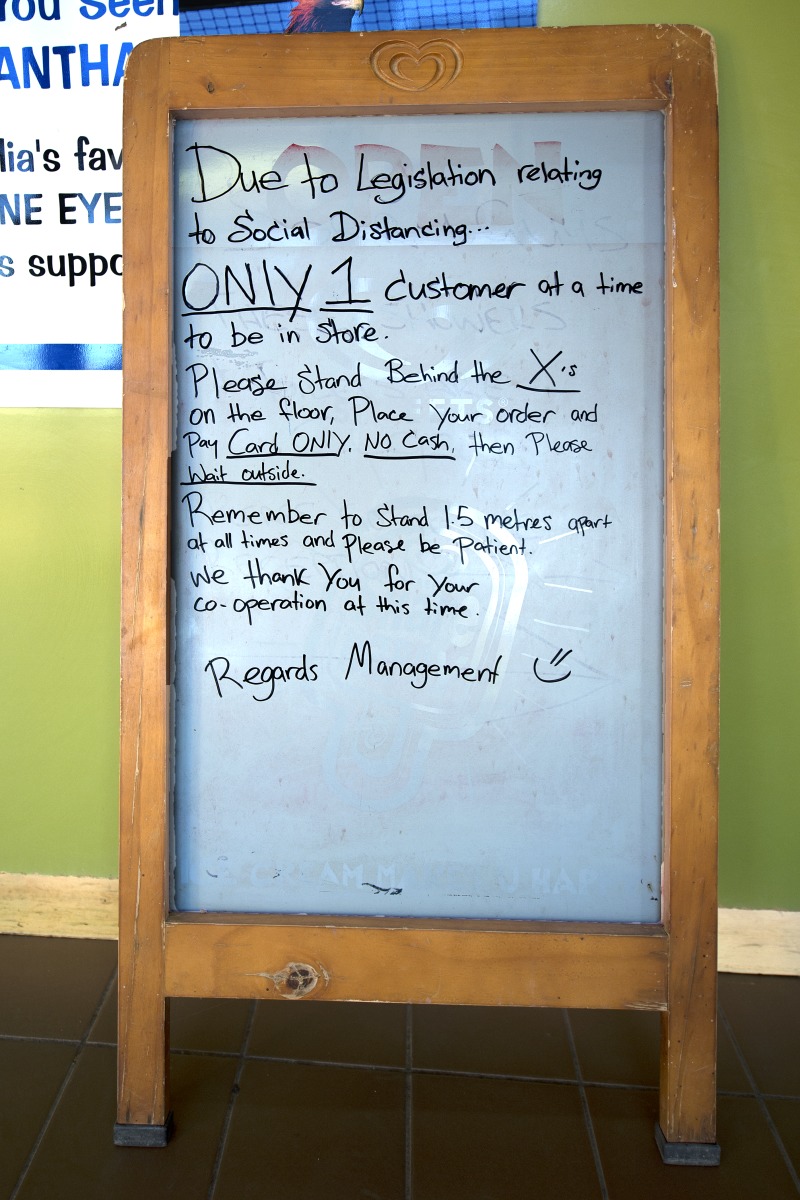 You seen
ANTHA
lia's fav
NE EYE
s suppo
OPEN
Due to Legislation relating
to Social Distancing...
ONLY 1 customer at a time
to be in store.
Please Stand Behind the X's
on the floor, Place Your order and
Pay Card ONLY, No Cash, then Please
Wait outside.
Remember to Stand 1.5 metres apart
at all times and Please be Patient.
We thank You for Your
co-operation at this time.
Regards Management